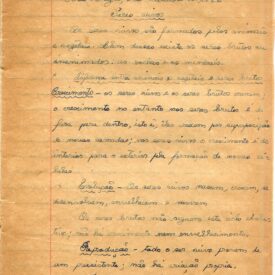 Seres vivos
Os seres vivos são formados pelos animais
e vegetais. Além desses existe os seres brutos ou
inanimados: as rochas e os minerais.
Crescimento - os seres vivos e os seres brutos crescem,
o crescimento no entanto nos seres brutos é de
fora para dentro, isto é, eles crescem por superposição
de novas camadas; nos seres vivos o crescimento é do
interior para o exterior pela formação de novas cé-
lulas.
Evolução - Os seres vivos nascem, crescem, se
desenvolvem, envelhecem e morrem.
Os seres brutos não seguem este ciclo
não há nascimento nem envelhecimento.
Reprodução - todo o ser vivo provem de
um preexistente; não há criação própria.